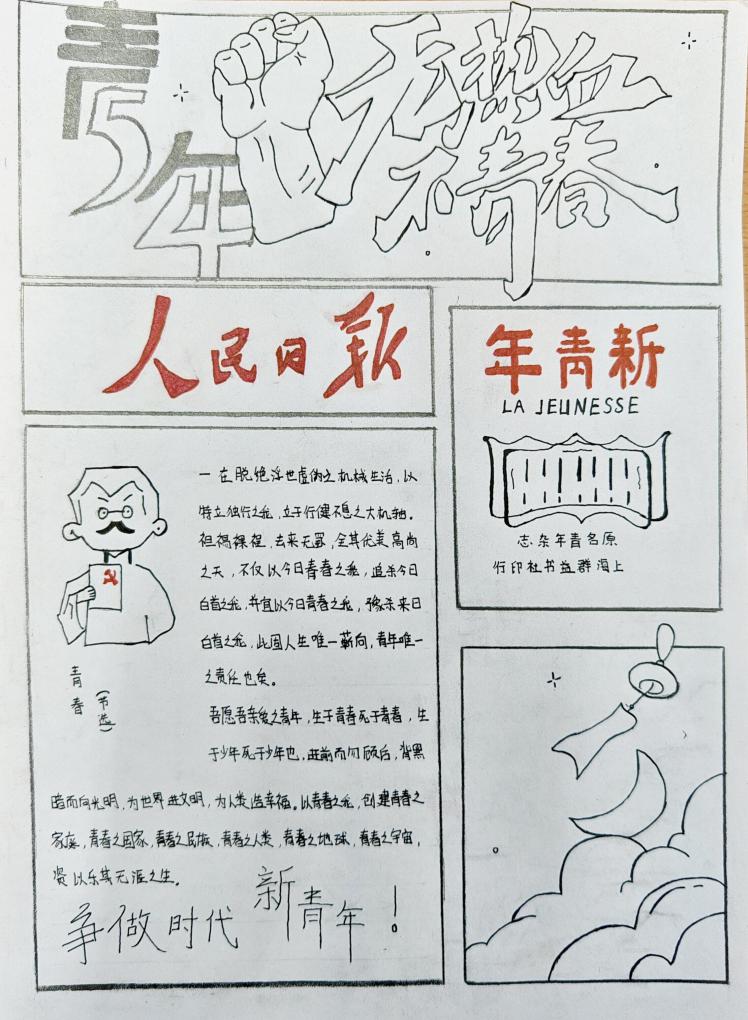 青年
无热血
不青春
人民日报
新青年
LA JEUNESSE
原名青年杂志
上海群益书社印行
一在脱绝浮世虚伪之机械生活,以
特立独行之我,立于行健不息之大机轴。
袒裼裸裎,去来无罣,全其优美高尚
之天,不仅以今日青春之我,追杀今日
白首之我,并宜以今日青春之我,豫杀来日
白首之我,此固人生唯一蕲向,青年唯一
之责任也矣。
青春
(节选)
吾愿吾亲爱之青年,生于青春死于青春,生
于少年死于少年也,进前而勿顾后,背黑
暗而向光明,为世界进文明,为人类造幸福。以青春之我,创建青春之
家庭,青春之国家,青春之民族,青春之人类,青春之地球,青春之宇宙,
资以乐其无涯之生。
争做时代新青年!